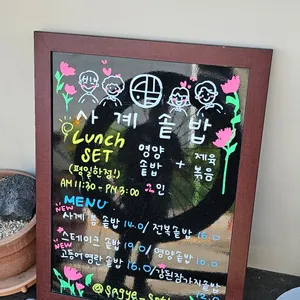 사계솥밥
Lunch
SET
(평일한정!)
AM 11:30 - PM 3:00
영양
솥밥
+
제육
볶음
2인
MENU
NEW
사계 봄 솥밥 14.0/ 전복솥밥 16.0
NEW
스테이크 솥밥 19.0/ 영양솥밥 10.0
고등어명란 솥밥 16.0/ 강된장가지솥밥